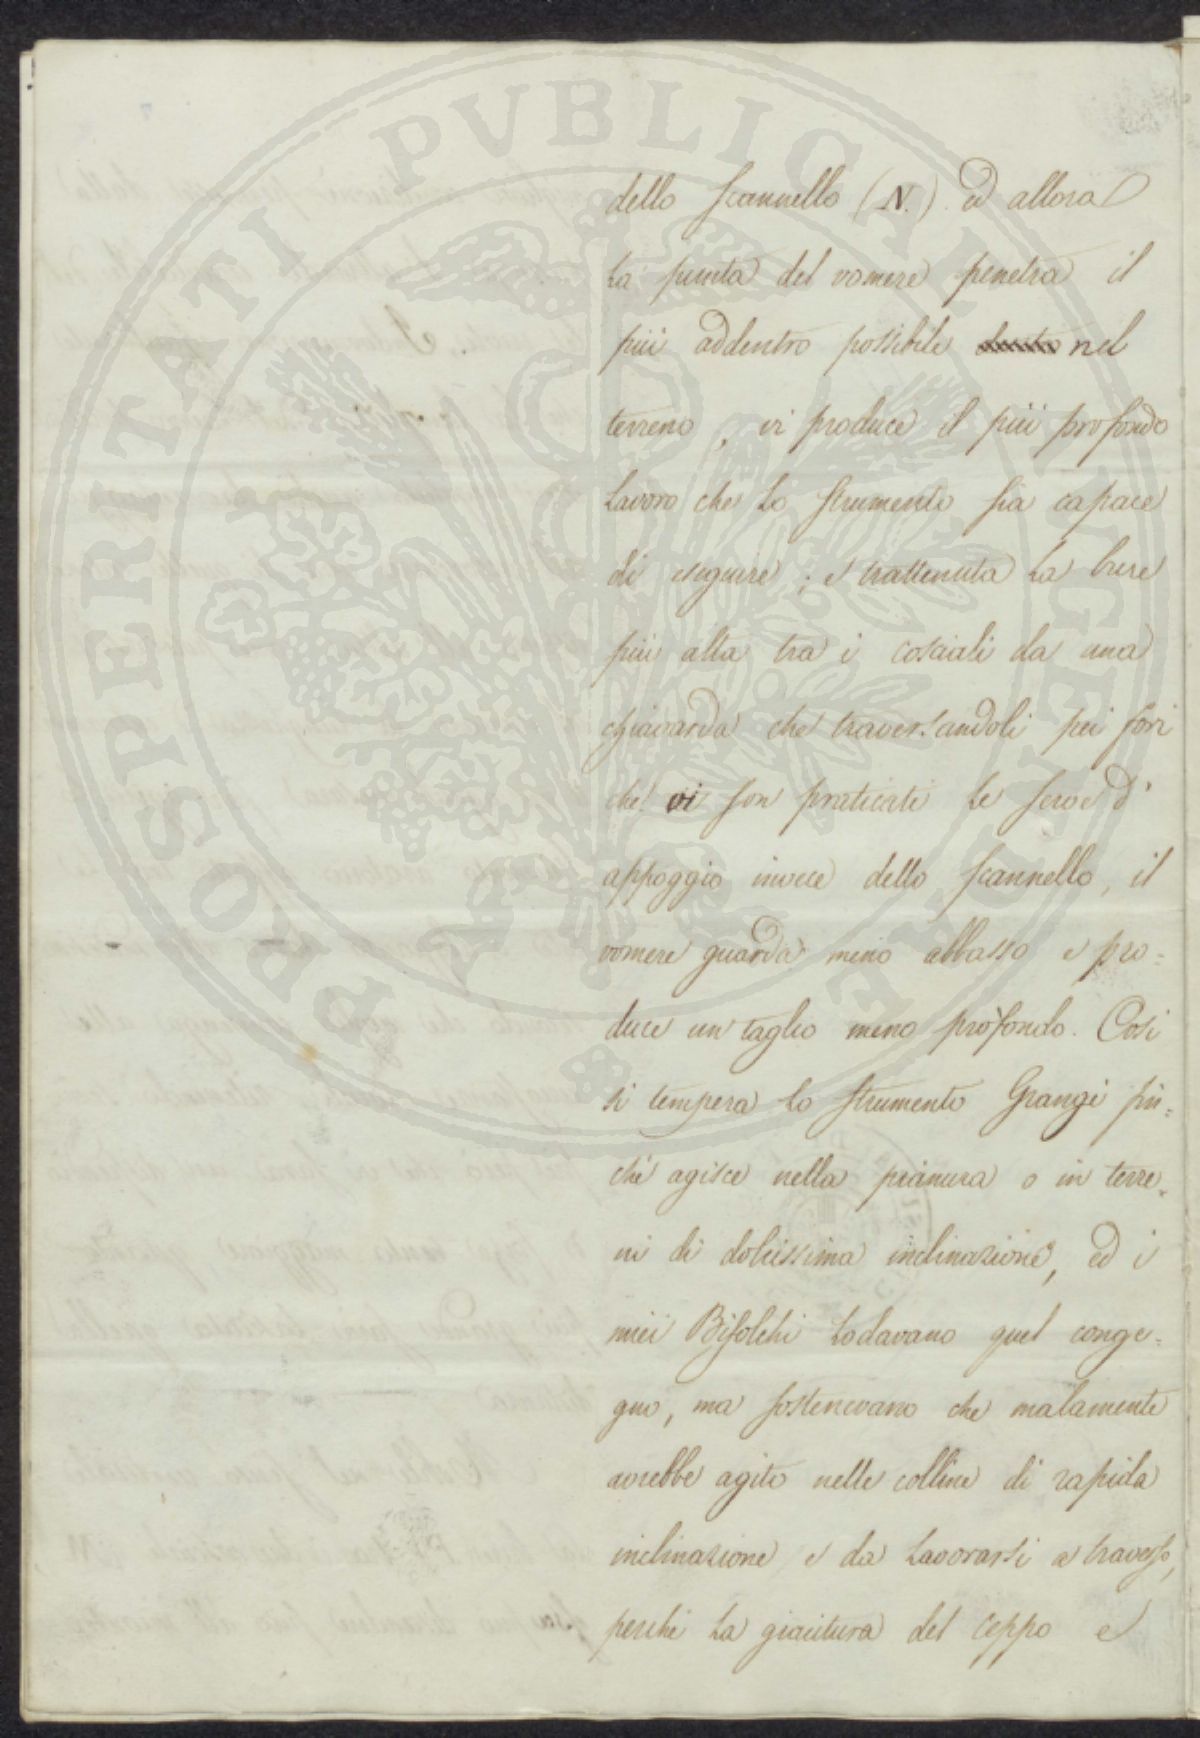 PROSPERITATI PUBLICAE AUGENDAE
dello Scannello (N.) ed allora
la punta del vomere penetra il
più addentro possibile nel
terreno, vi produce il più profondo
lavoro che lo strumento sia capace
di eseguire; e trattenuta la bure
più alta tra i cosciali da una
chiavarda che traversandoli pei fori
che vi son praticati le serve d'
appoggio invece dello scannello, il
vomere guarda meno abbasso e pro=
duce un taglio meno profondo. Così
si tempera lo strumento Grangè fin=
chè agisce nella pianura o in terre=
ni di dolcissima inclinazione, ed i
miei Bifolchi lodavano quel conge=
gno, ma sostenevano che malamente
avrebbe agito nelle colline di rapida
inclinazione e da lavorarsi a traverso,
perchè la giacitura del ceppo e